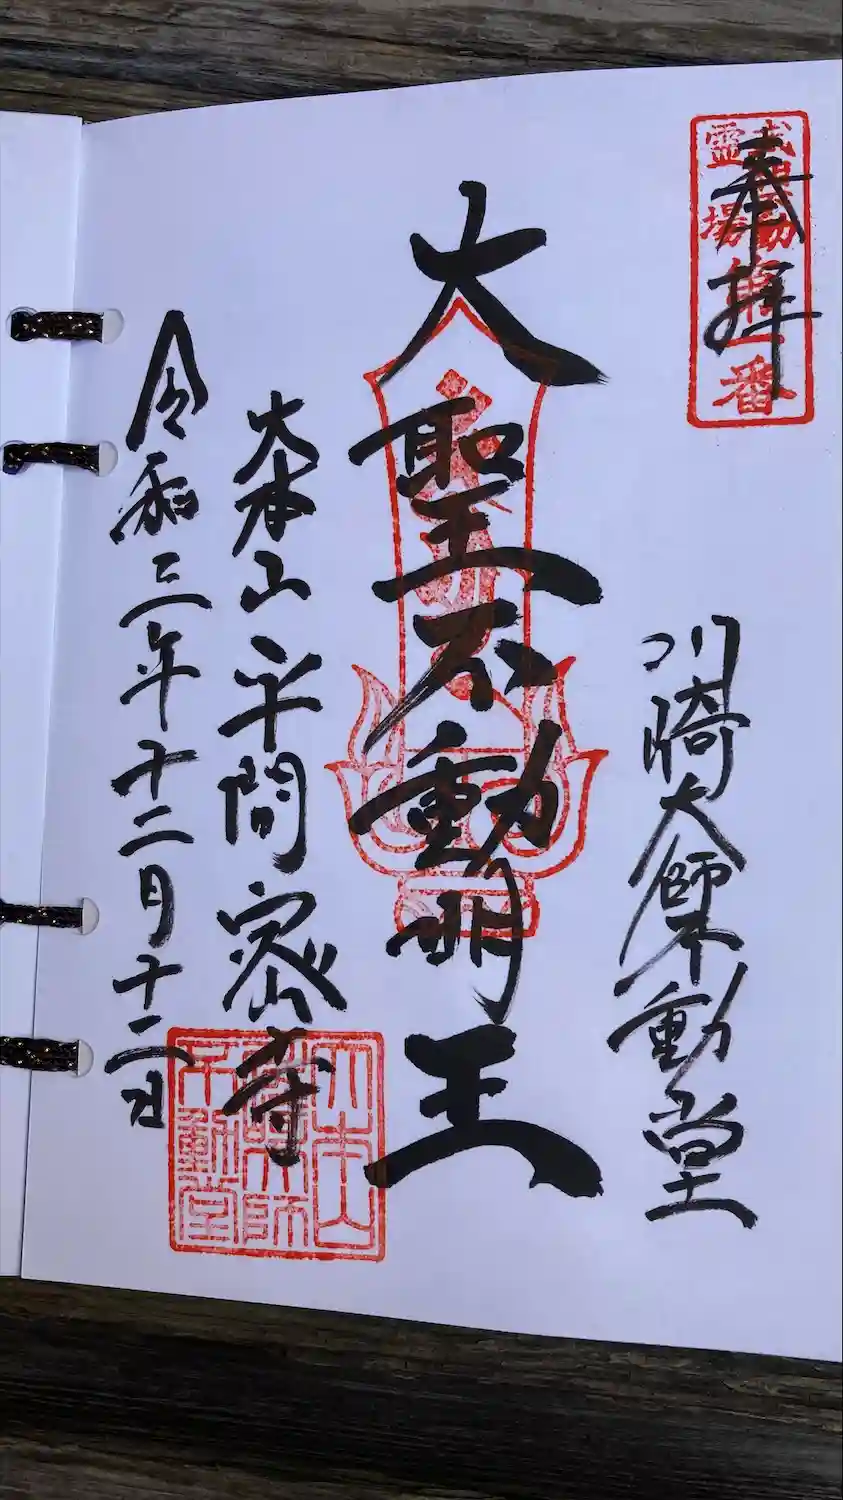 奉拝
武相不動
霊場第一番
川崎大師不動堂
大聖不動明王
大本山平間密寺
令和三年十二月十二日
大本山
川崎大師
不動堂